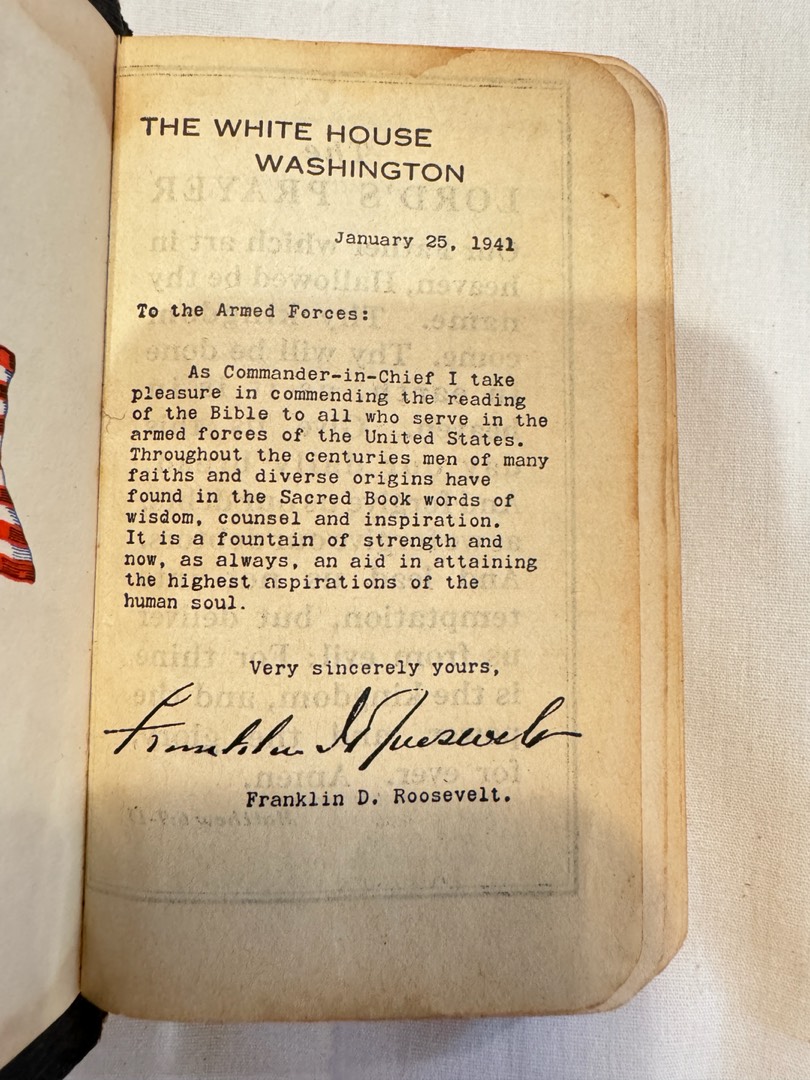 THE WHITE HOUSE
WASHINGTON
January 25, 1941
To the Armed Forces:
As Commander-in-Chief I take
pleasure in commending the reading
of the Bible to all who serve in the
armed forces of the United States.
Throughout the centuries men of many
faiths and diverse origins have
found in the Sacred Book words of
wisdom, counsel and inspiration.
It is a fountain of strength and
now, as always, an aid in attaining
the highest aspirations of the
human soul.
Very sincerely yours,
Franklin D. Roosevelt
Franklin D. Roosevelt.